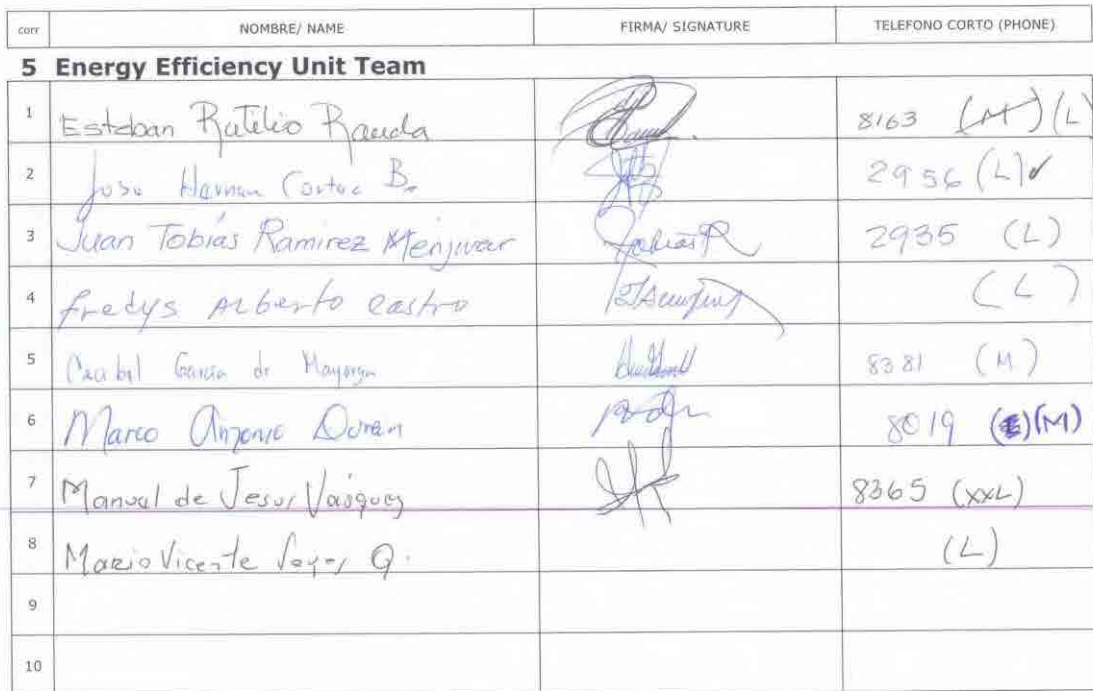 corr NOMBRE/ NAME FIRMA/ SIGNATURE TELEFONO CORTO (PHONE)
5 Energy Efficiency Unit Team
1 Esteban Rutilio Rauda 8163 (M) (L
2 Jose Hernan Cortez B. 2956 (L)
3 Juan Tobías Ramirez Menjivar TobiasR 2935 (L)
4 fredys Alberto Castro (L)
5 García de Mayorga 8381 (M)
6 Marco Antonio Duran 8019 (M)
7 Manuel de Jesus Vásquez 8365 (XXL)
8 Mario Vicente Q. (L)
9
10